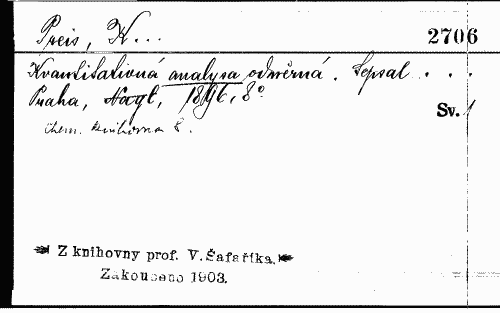 Preis, K...
2706
Kvantitativná analysa odměrná. Sepsal . . .
Praha, Nagl, 1896, 8°
Sv. 1
Chem. knihovna 8.
Z knihovny prof. V. Šafaříka.
Zakoupeno 1903.